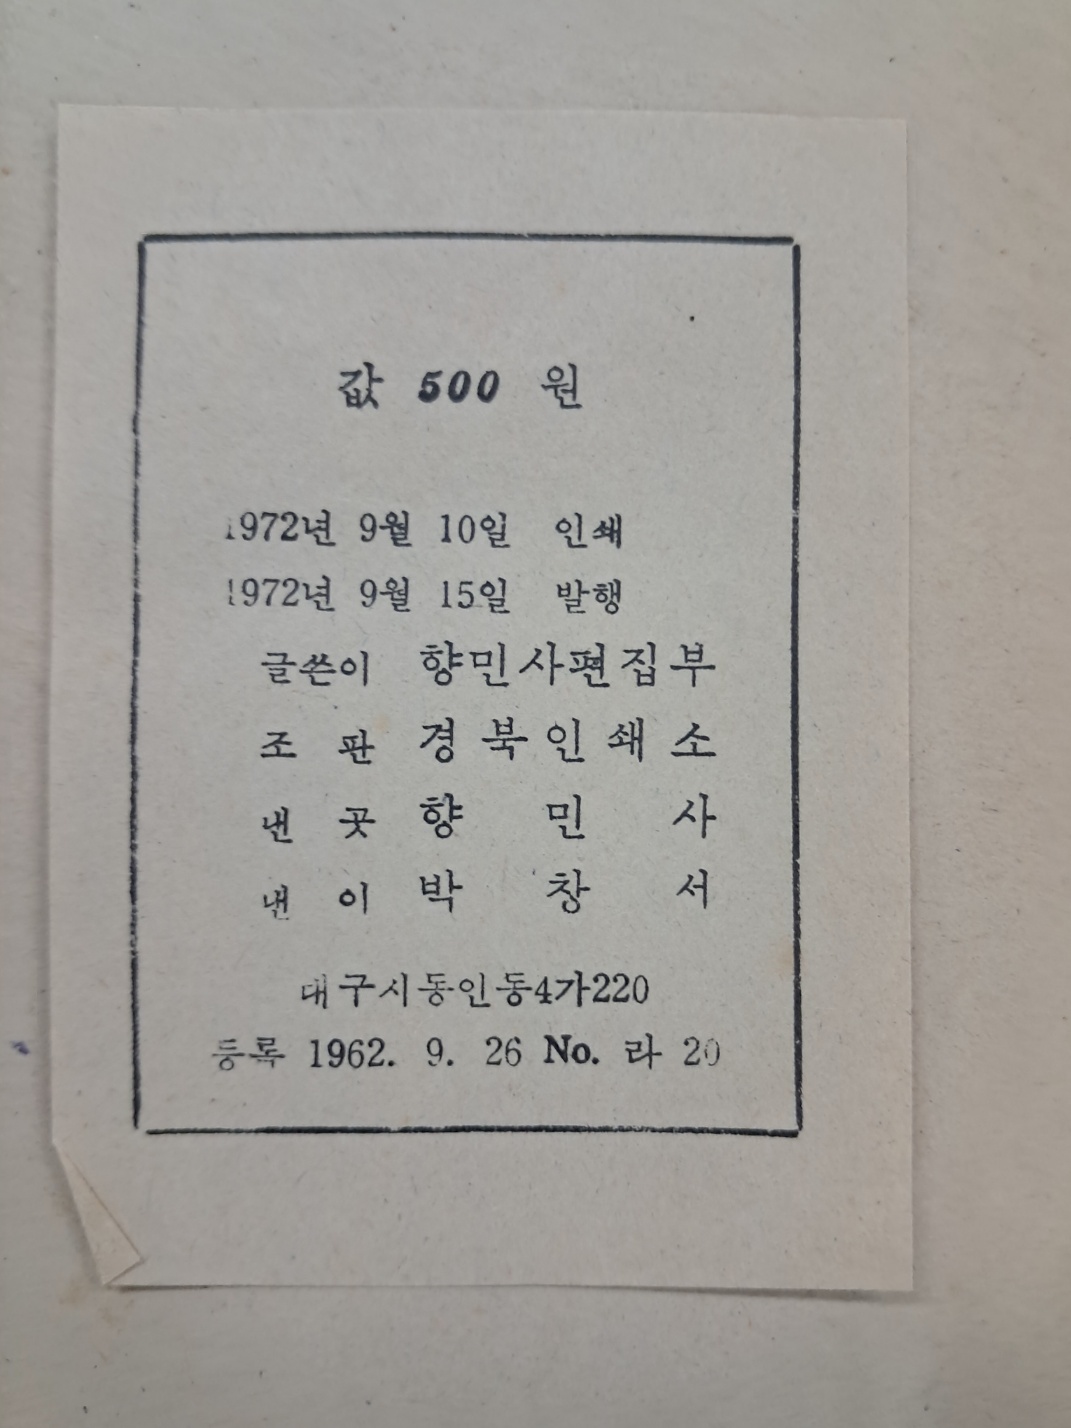 값 500 원
1972년 9월 10일 인쇄
1972년 9월 15일 발행
글쓴이 향민사편집부
조 판 경북인쇄소
낸 곳 향 민 사
낸 이 박 창 서
대구시동인동4가220
등록 1962. 9. 26 No. 라 20